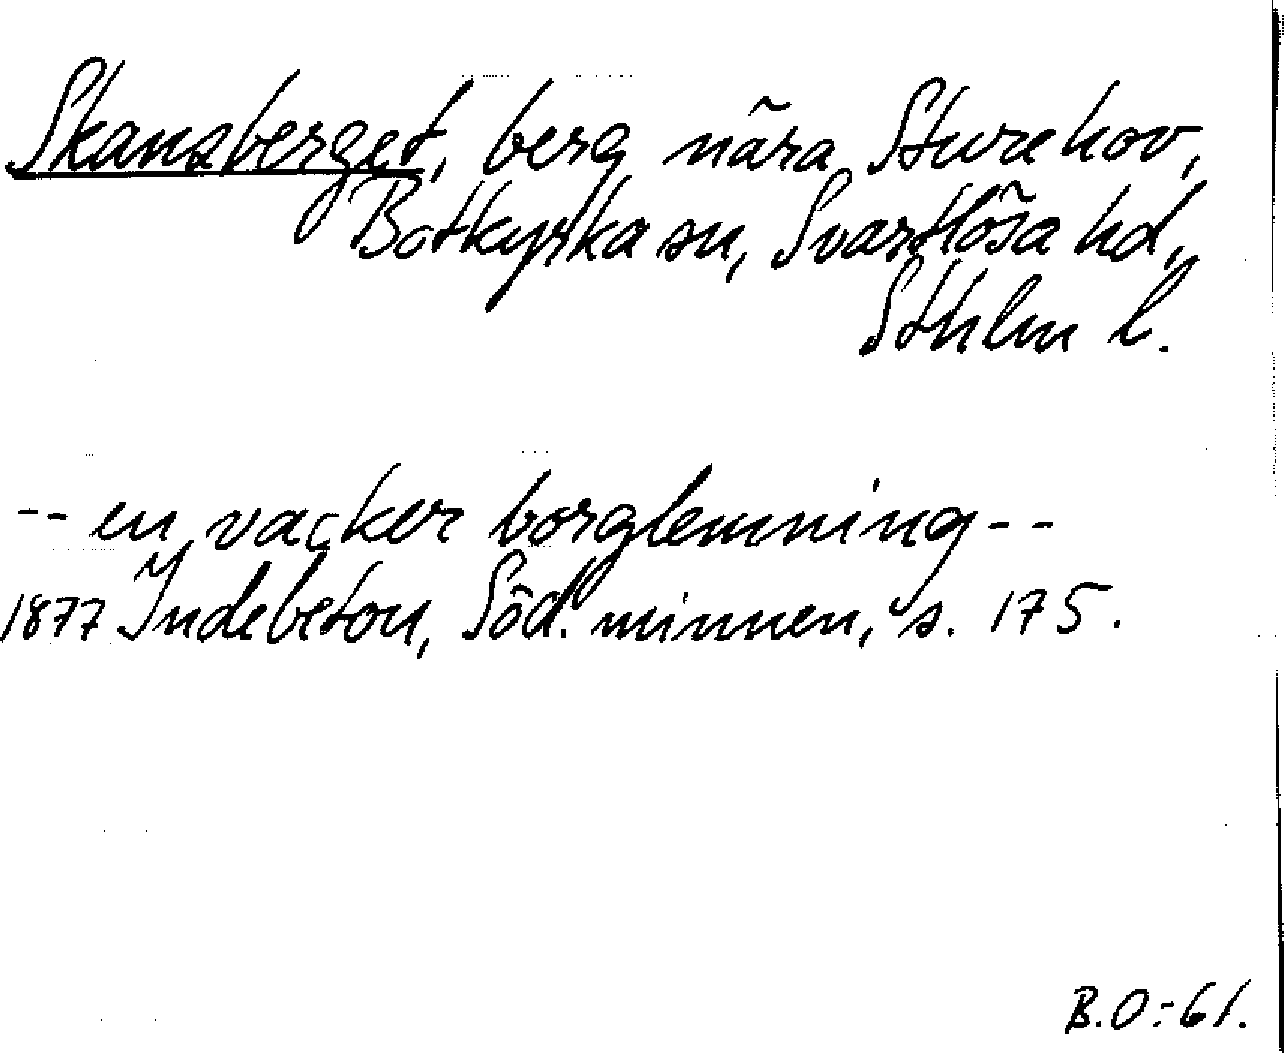 Skansberget, berg nära Sturehov,
Botkyrka sn, Svartlösa hd,
Sthlm l.
-- en vacker borglemning --
1877 Indebetou, Söd. minnen, s. 175.
B.O:-61.